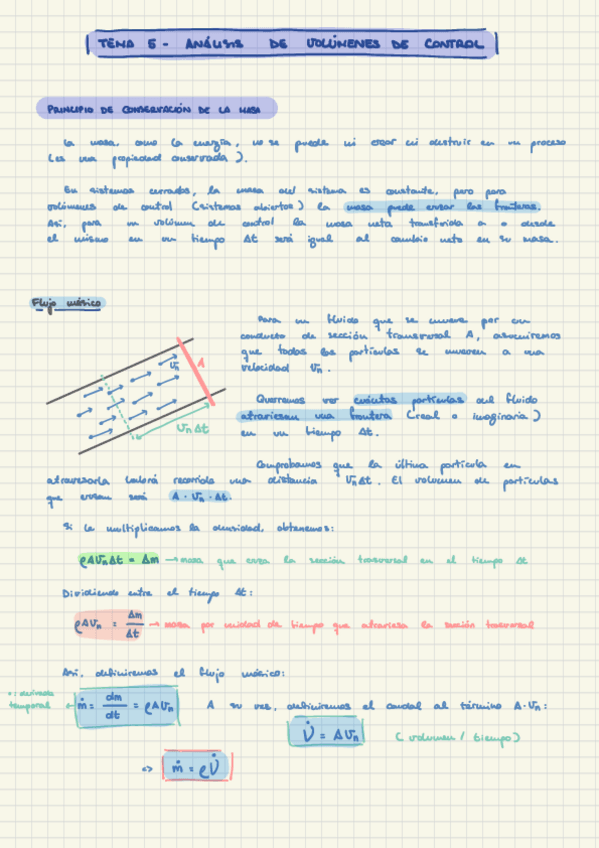 TEMA 5 - ANÁLISIS DE VOLÚMENES DE CONTROL
PRINCIPIO DE CONSERVACIÓN DE LA MASA
La masa, como la energía, no se puede ni crear ni destruir en un proceso
(es una propiedad conservada).
En sistemas cerrados, la masa del sistema es constante, pero para
volúmenes de control (sistemas abiertos) la masa puede cruzar las fronteras.
Así, para un volúmen de control la masa neta transferida a o desde
el mismo en un tiempo Δt será igual al cambio neto en su masa.
Flujo másico
Para un fluido que se mueve por un
conducto de sección transversal A, asumiremos
que todas las partículas se mueven a una
velocidad Vn.
Vn
A
Vn Δt
Queremos ver cuántas partículas del fluido
atraviesan una frontera (real o imaginaria)
en un tiempo Δt.
Comprobamos que la última partícula en
atravesarla habrá recorrido una distancia VnΔt. El volumen de partículas
que cruzan será A · Vn · Δt.
Si le multiplicamos la densidad, obtenemos:
ρAVnΔt = Δm → masa que cruza la sección trasversal en el tiempo Δt
Dividiendo entre el tiempo Δt:
ρAVn = Δm/Δt → masa por unidad de tiempo que atraviesa la sección trasversal
Así, definiremos el flujo másico:
• : derivada temporal ← ṁ = dm/dt = ρAVn A su vez, definiremos el caudal al término A·Vn:
V̇ = AVn (volumen / tiempo)
=> ṁ = ρV̇